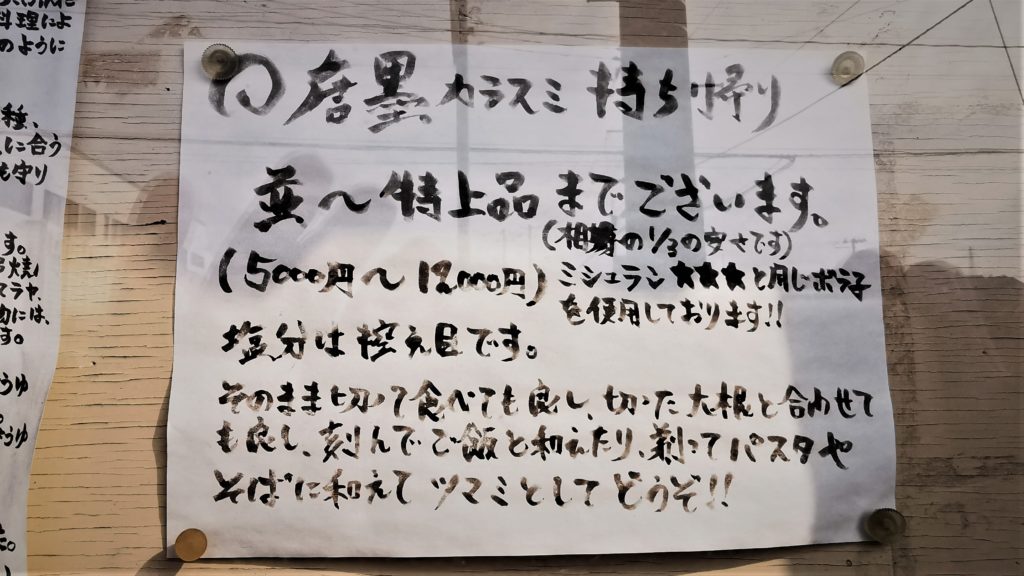 料理によ
のように
種、
に合う
も守り
す。
焼
には、
す。
うゆ
うゆ
唐墨 カラスミ 持ち帰り
並〜特上品までございます。
(相場の1/3の安さです)
(5000円〜12,000円) ミシュラン★★★と同じボラ子
を使用しております!!
塩分は控え目です。
そのまま切って食べても良し、切った大根と合わせて
も良し、刻んでご飯と和えたり、削ってパスタや
そばに和えてツマミとしてどうぞ!!